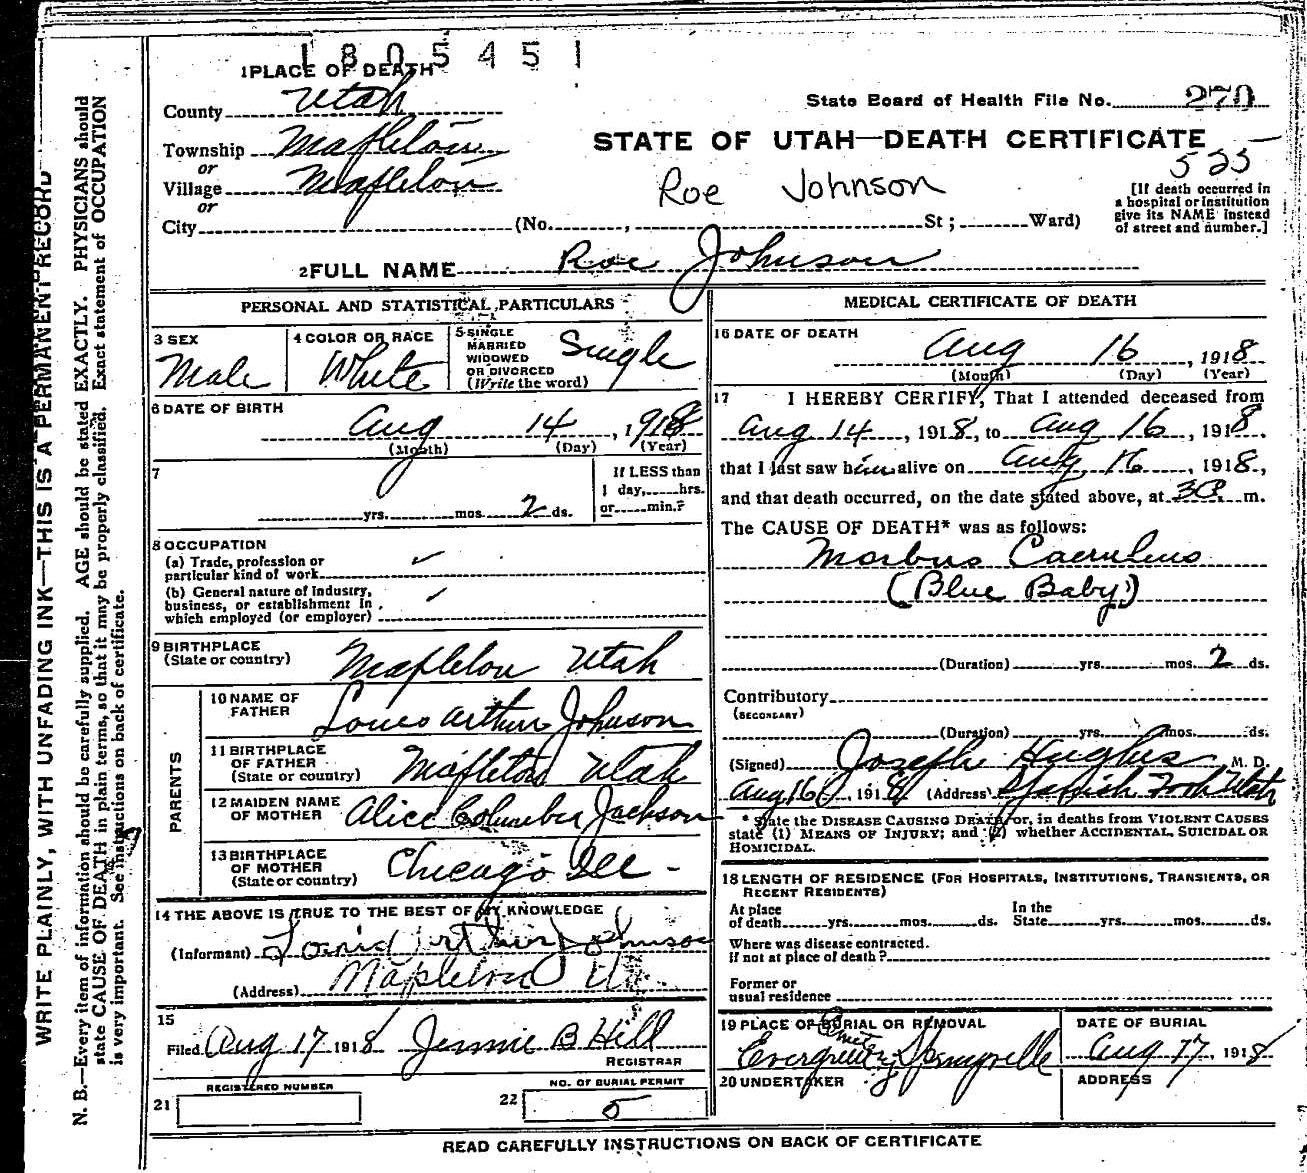 1805451
1 PLACE OF DEATH
County Utah
State Board of Health File No. 270
Township Mapleton
or
Village Mapleton
or
City (No. , St ; Ward)
STATE OF UTAH—DEATH CERTIFICATE
525
Roe Johnson
[If death occurred in
a hospital or institution
give its NAME instead
of street and number.]
2 FULL NAME Roe Johnson
PERSONAL AND STATISTICAL PARTICULARS
3 SEX
Male
4 COLOR OR RACE
White
5 SINGLE
MARRIED
WIDOWED
OR DIVORCED
(Write the word)
Single
6 DATE OF BIRTH
Aug 14, 1918
(Month) (Day) (Year)
7
yrs. mos. 2 ds.
If LESS than
1 day, hrs.
or min.?
8 OCCUPATION
(a) Trade, profession or
particular kind of work ✓
(b) General nature of Industry,
business, or establishment in
which employed (or employer) ✓
9 BIRTHPLACE
(State or country) Mapleton Utah
PARENTS
10 NAME OF
FATHER Louis Arthur Johnson
11 BIRTHPLACE
OF FATHER
(State or country) Mapleton Utah
12 MAIDEN NAME
OF MOTHER Alice Jackson
13 BIRTHPLACE
OF MOTHER
(State or country) Chicago Ill -
14 THE ABOVE IS TRUE TO THE BEST OF MY KNOWLEDGE
(Informant) Louis Arthur Johnson
(Address) Mapleton Ut
15
Filed Aug 17 1918 Jennie B Hill
REGISTRAR
REGISTERED NUMBER
21
NO. OF BURIAL PERMIT
22 5
MEDICAL CERTIFICATE OF DEATH
16 DATE OF DEATH
Aug 16, 1918
(Month) (Day) (Year)
17 I HEREBY CERTIFY, That I attended deceased from
Aug 14, 1918, to Aug 16, 1918,
that I last saw him alive on Aug 16, 1918,
and that death occurred, on the date stated above, at 3 P. m.
The CAUSE OF DEATH* was as follows:
Morbus Caeruleus
(Blue Baby)
(Duration) yrs. mos. 2 ds.
Contributory
(SECONDARY)
(Duration) yrs. mos. ds.
(Signed) Joseph Hughes M. D.
Aug 16, 1918 (Address) Spanish Fork Utah
* State the DISEASE CAUSING DEATH, or, in deaths from VIOLENT CAUSES
state (1) MEANS OF INJURY; and (2) whether ACCIDENTAL, SUICIDAL OR
HOMICIDAL.
18 LENGTH OF RESIDENCE (FOR HOSPITALS, INSTITUTIONS, TRANSIENTS, OR
RECENT RESIDENTS)
At place In the
of death yrs. mos. ds. State yrs. mos. ds.
Where was disease contracted.
If not at place of death?
Former or
usual residence
19 PLACE OF BURIAL OR REMOVAL
Evergreen Springville
DATE OF BURIAL
Aug 17, 1918
20 UNDERTAKER
ADDRESS
READ CAREFULLY INSTRUCTIONS ON BACK OF CERTIFICATE
WRITE PLAINLY, WITH UNFADING INK—THIS IS A PERMANENT RECORD
N. B.—Every item of information should be carefully supplied. AGE should be stated EXACTLY. PHYSICIANS should
state CAUSE OF DEATH in plain terms, so that it may be properly classified. Exact statement of OCCUPATION
is very important. See instructions on back of certificate.